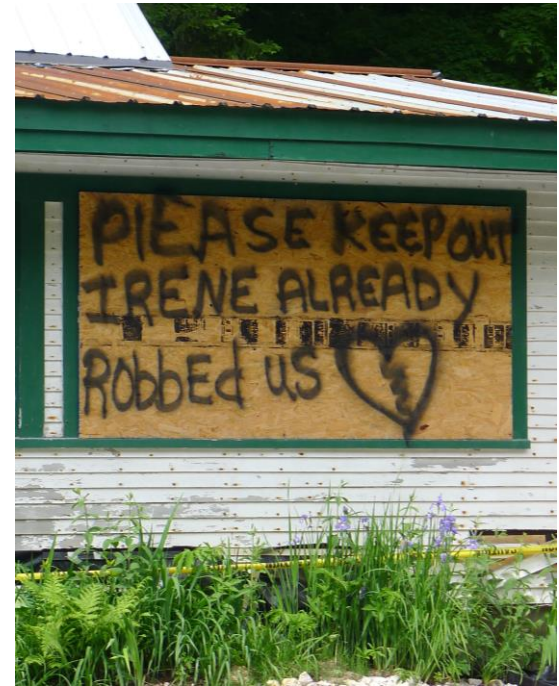 PlEASE KEEP OUT
IRENE ALREADY
RobbEd uS